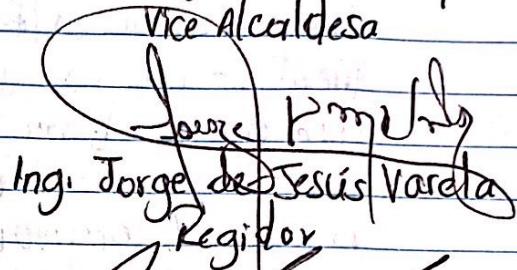 Vice Alcaldesa
Ing. Jorge de Jesús Varela
Regidor